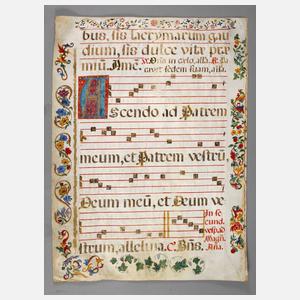 bus, sis lacrymarum gau
dium, sis dulce vitæ præ
miũ. Amẽ. ℣. Dñs in cælo, alla. ℟. Pa
ravit sedem suam, alla.
Ascendo ad Patrem
meum, et Patrem vestrũ,
Deum meũ, et Deum ve
strum, alleluia.
In se
cund.
vesp. ad
Magñ.
Aña.